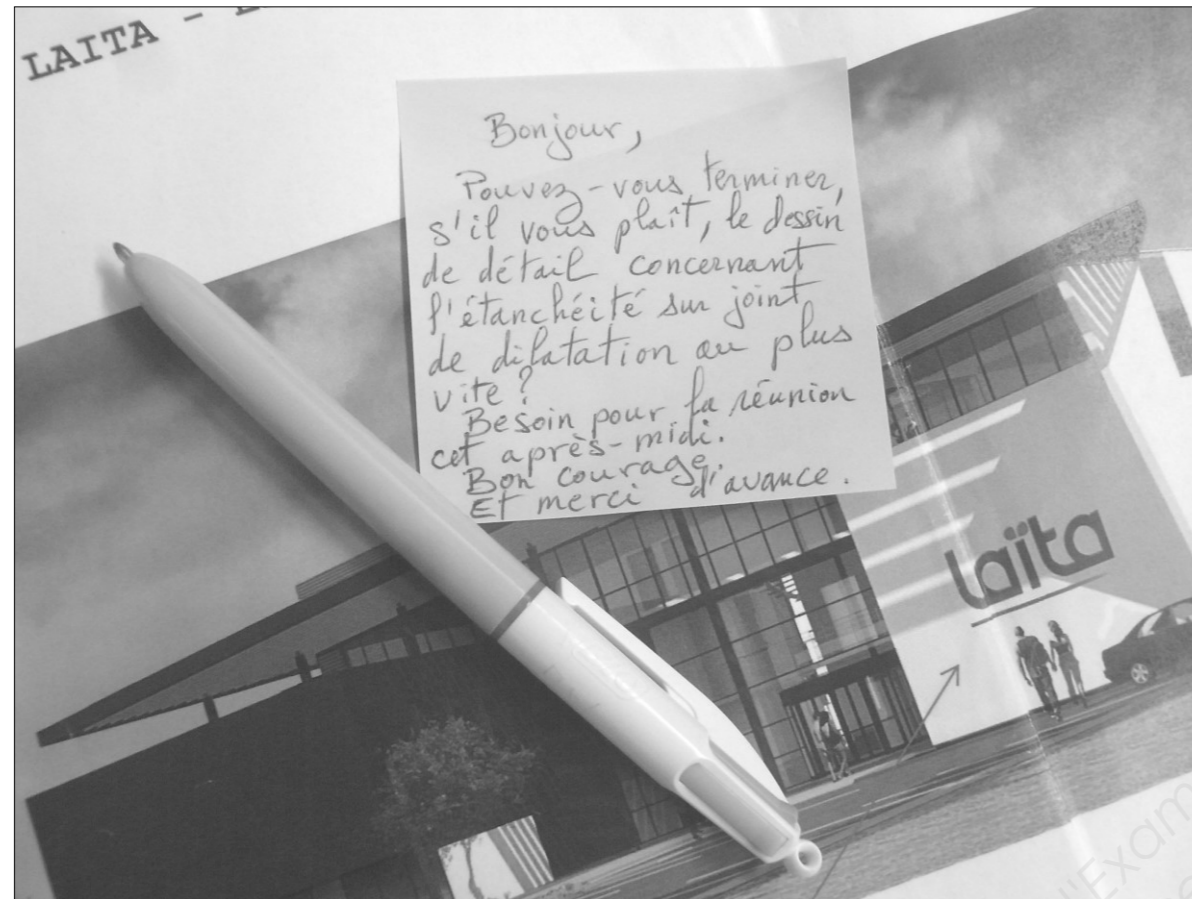 LAITA -
Bonjour,
Pouvez-vous terminer,
s'il vous plaît, le dessin
de détail concernant
l'étanchéité sur joint
de dilatation au plus
vite ?
Besoin pour la réunion
cet après-midi.
Bon courage.
Et merci d'avance.
laïta
l'Exam